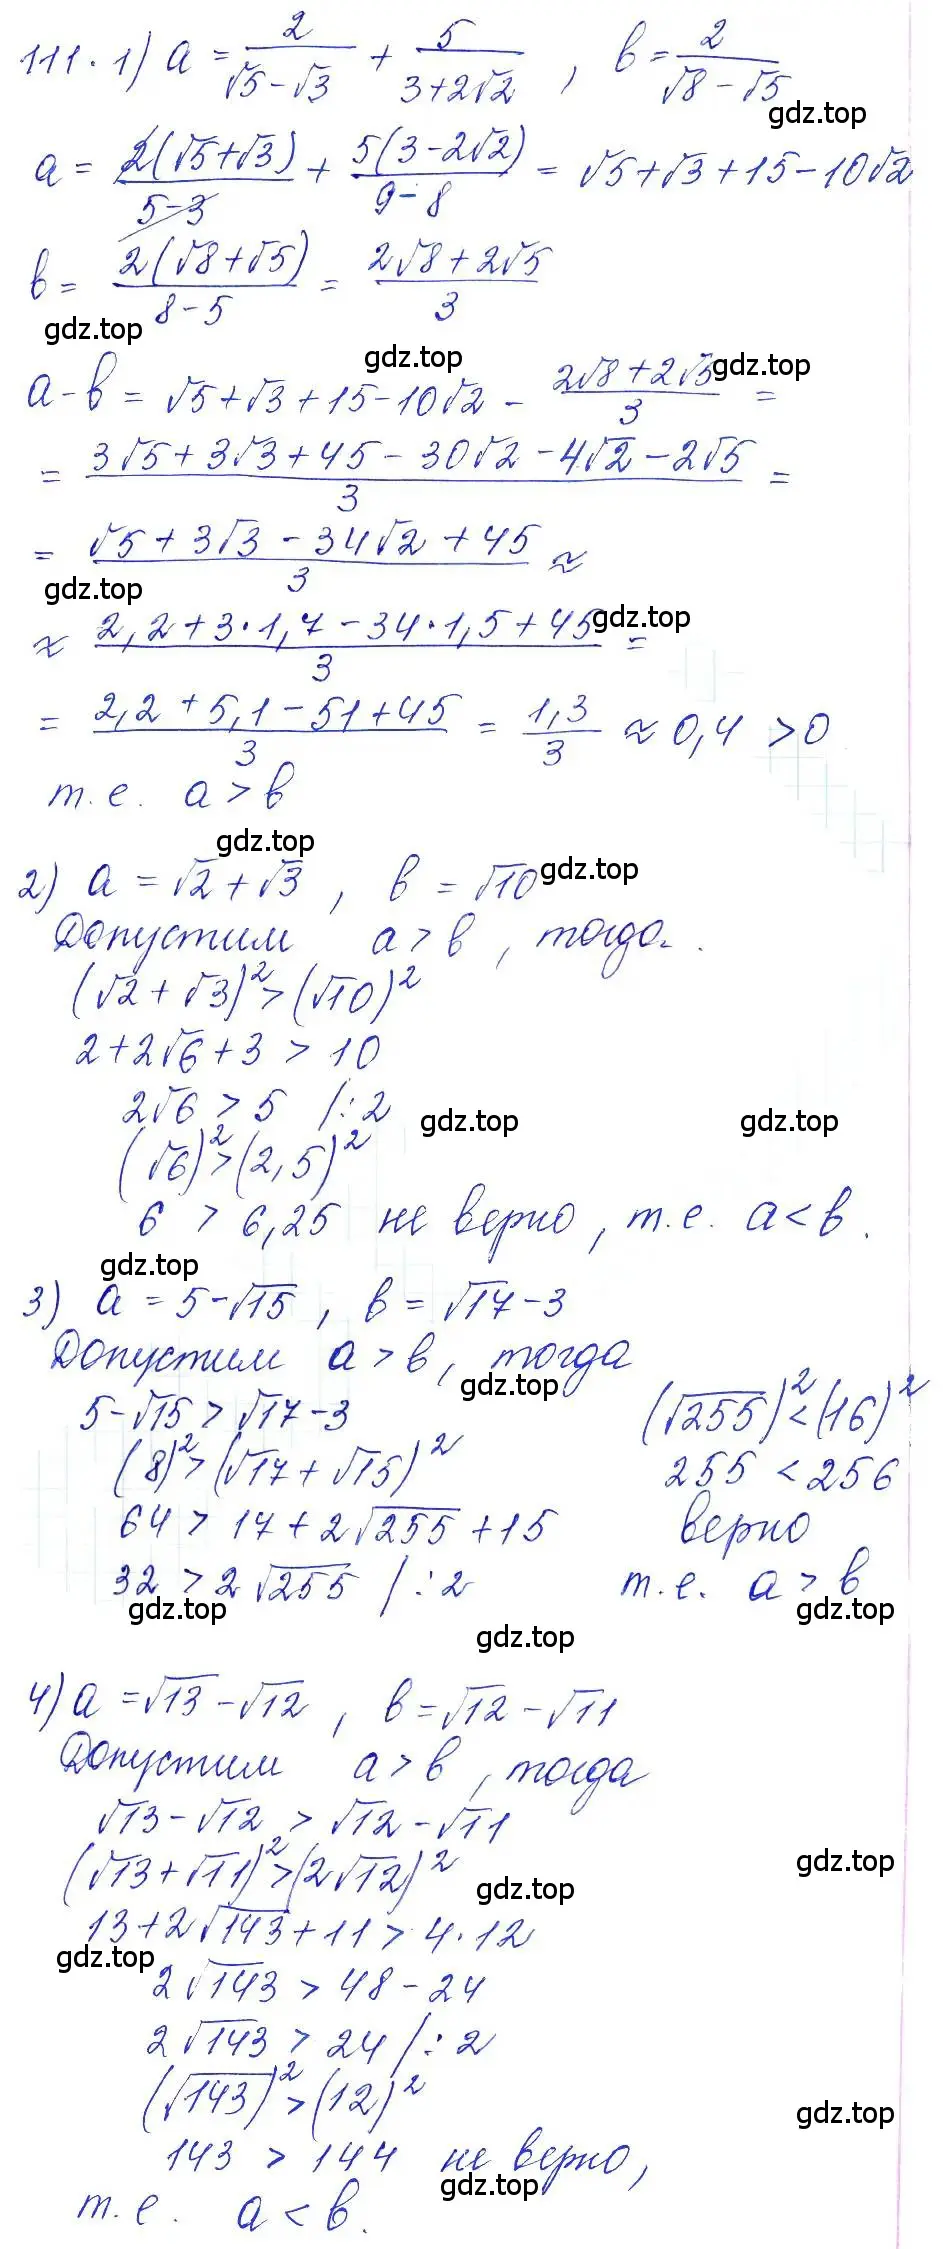 111. 1) a = 2/(√5-√3) + 5/(3+2√2) , b = 2/(√8-√5)
gdz.top
a = 2(√5+√3)/(5-3) + 5(3-2√2)/(9-8) = √5+√3+15-10√2
b = 2(√8+√5)/(8-5) = (2√8+2√5)/3
gdz.top
gdz.top
gdz.top
a-b = √5+√3+15-10√2 - (2√8+2√5)/3 =
= (3√5+3√3+45-30√2-4√2-2√5)/3 =
= (√5+3√3-34√2+45)/3 ≈
gdz.top
gdz.top
≈ (2,2+3·1,7-34·1,5+45)/3 =
= (2,2+5,1-51+45)/3 = 1,3/3 ≈ 0,4 > 0
т.е. a > b
gdz.top
gdz.top
2) a = √2+√3 , b = √10
Допустим a > b , тогда.
(√2+√3)² > (√10)²
2+2√6+3 > 10
2√6 > 5 /:2
gdz.top
gdz.top
(√6)² > (2,5)²
6 > 6,25 не верно, т.е. a < b.
gdz.top
3) a = 5-√15 , b = √17-3
Допустим a > b, тогда
gdz.top
5-√15 > √17-3
(8)² > (√17+√15)²
64 > 17+2√255+15
32 > 2√255 /:2
gdz.top
(√255)² < (16)²
255 < 256
верно
т.е. a > b
gdz.top
gdz.top
4) a = √13-√12 , b = √12-√11
Допустим a > b , тогда
√13-√12 > √12-√11
(√13+√11)² > (2√12)²
gdz.top
gdz.top
13+2√143+11 > 4·12
gdz.top
2√143 > 48-24
2√143 > 24 /:2
(√143)² > (12)²
gdz.top
143 > 144 не верно,
gdz.top
т.е. a < b.